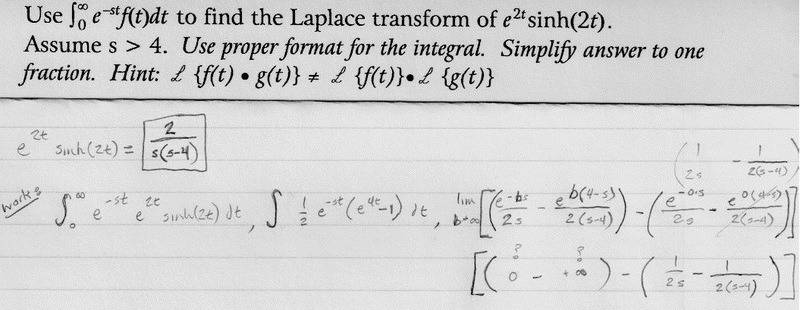 Use ∫₀^∞ e^(-st) f(t)dt to find the Laplace transform of e^(2t) sinh(2t).
Assume s > 4. Use proper format for the integral. Simplify answer to one
fraction. Hint: ℒ {f(t) • g(t)} ≠ ℒ {f(t)}•ℒ {g(t)}
e^(2t) sinh(2t) = 2/(s(s-4))
(1/(2s) - 1/(2(s-4)))
work: ∫₀^∞ e^(-st) e^(2t) sinh(2t) dt, ∫ 1/2 e^(-st) (e^(4t)-1) dt, lim b→∞ [(e^(-bs)/(2s) - e^(b(4-s))/(2(s-4))) - (e^(-0·s)/(2s) - e^(0(4-s))/(2(s-4)))]
? ?
[(0 - +∞) - (1/(2s) - 1/(2(s-4)))]